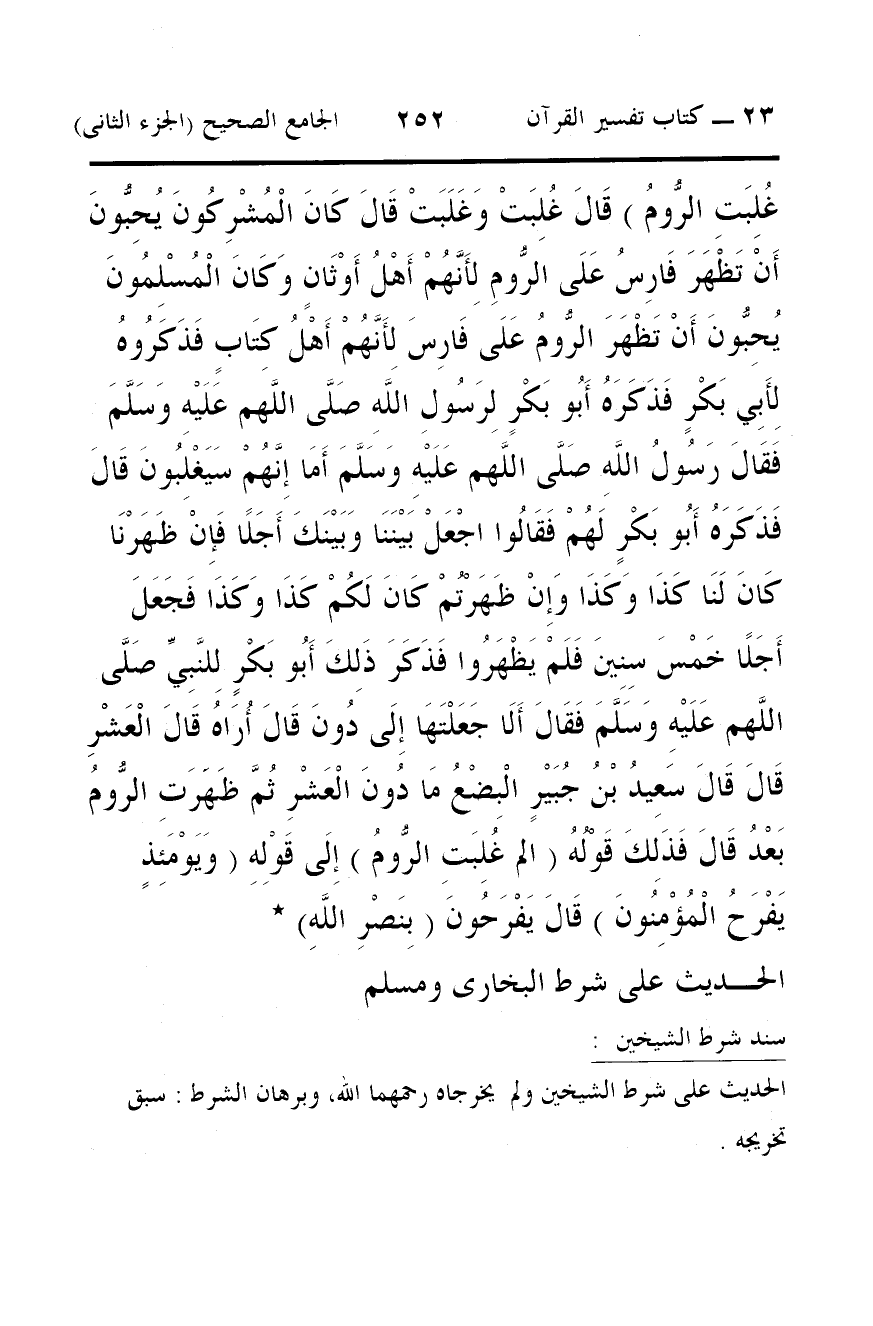 ٢٣ ــ كتاب تفسير القرآن ٢٥٢ الجامع الصحيح (الجزء الثانى)
غُلِبَتِ الرُّومُ ) قَالَ غُلِبَتْ وَغَلَبَتْ قَالَ كَانَ الْمُشْرِكُونَ يُحِبُّونَ
أَنْ تَظْهَرَ فَارِسُ عَلَى الرُّومِ لِأَنَّهُمْ أَهْلُ أَوْثَانٍ وَكَانَ الْمُسْلِمُونَ
يُحِبُّونَ أَنْ تَظْهَرَ الرُّومُ عَلَى فَارِسَ لِأَنَّهُمْ أَهْلُ كِتَابٍ فَذَكَرُوهُ
لِأَبِي بَكْرٍ فَذَكَرَهُ أَبُو بَكْرٍ لِرَسُولِ اللَّهِ صَلَّى اللَّهم عَلَيْهِ وَسَلَّمَ
فَقَالَ رَسُولُ اللَّهِ صَلَّى اللَّهم عَلَيْهِ وَسَلَّمَ أَمَا إِنَّهُمْ سَيَغْلِبُونَ قَالَ
فَذَكَرَهُ أَبُو بَكْرٍ لَهُمْ فَقَالُوا اجْعَلْ بَيْنَنَا وَبَيْنَكَ أَجَلًا فَإِنْ ظَهَرْنَا
كَانَ لَنَا كَذَا وَكَذَا وَإِنْ ظَهَرْتُمْ كَانَ لَكُمْ كَذَا وَكَذَا فَجَعَلَ
أَجَلًا خَمْسَ سِنِينَ فَلَمْ يَظْهَرُوا فَذَكَرَ ذَلِكَ أَبُو بَكْرٍ لِلنَّبِيِّ صَلَّى
اللَّهم عَلَيْهِ وَسَلَّمَ فَقَالَ أَلَا جَعَلْتَهَا إِلَى دُونَ قَالَ أُرَاهُ قَالَ الْعَشْرِ
قَالَ قَالَ سَعِيدُ بْنُ جُبَيْرٍ الْبِضْعُ مَا دُونَ الْعَشْرِ ثُمَّ ظَهَرَتِ الرُّومُ
بَعْدُ قَالَ فَذَلِكَ قَوْلُهُ ( الم غُلِبَتِ الرُّومُ ) إِلَى قَوْلِهِ ( وَيَوْمَئِذٍ
يَفْرَحُ الْمُؤْمِنُونَ ) قَالَ يَفْرَحُونَ ( بِنَصْرِ اللَّهِ) *
الحـــديث على شرط البخارى ومسلم
سند شرط الشيخين :
الحديث على شرط الشيخين ولم يخرجاه رحمهما الله، وبرهان الشرط : سبق
تخريجه .